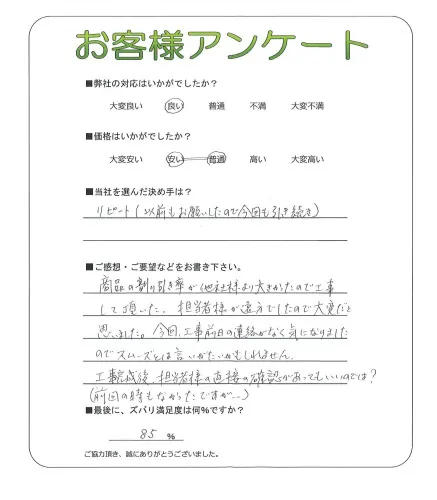 お客様アンケート
■弊社の対応はいかがでしたか？
大変良い 良い 普通 不満 大変不満
■価格はいかがでしたか？
大変安い 安い 普通 高い 大変高い
■当社を選んだ決め手は？
リピート(以前もお願いしたので今回も引き続き)
■ご感想・ご要望などをお書き下さい。
商品の割り引き率が他社様より大きかったので工事
して頂いた。担当者様が遠方でしたので大変だと
思いました。今回、工事前日の連絡がなく気になりました
のでスムーズとは言いがたいかもしれません.
工事完成後、担当者様の直接の確認があってもいいのでは？
(前回の時もなかったですが…)
■最後に、ズバリ満足度は何%ですか？
85 %
ご協力頂き、誠にありがとうございました。